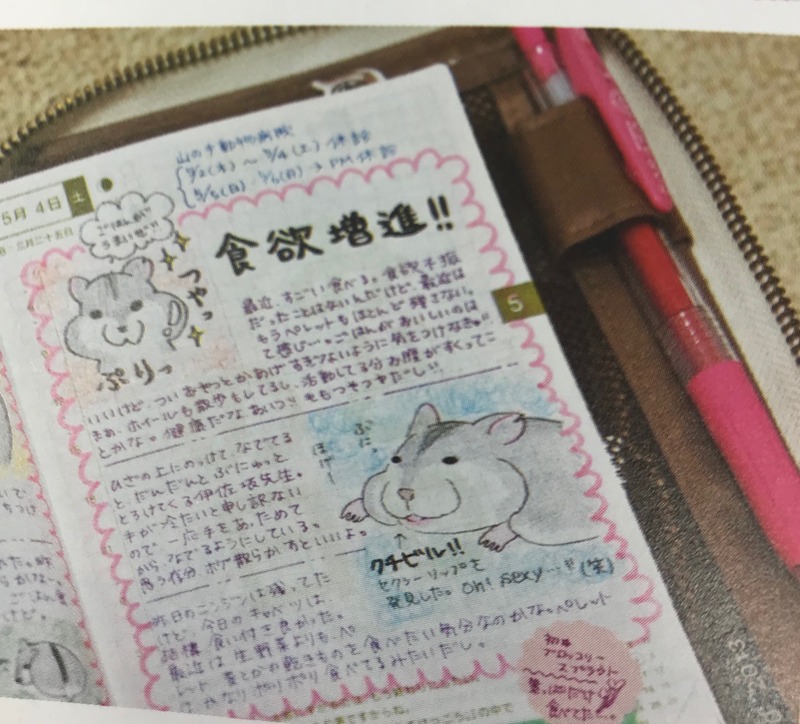 山の手動物病院
5/2(木)〜5/4(土)休診
5/5(日)5/6(月)→PM休診
5月 4日 土
三月二十五日
ごはんが
うまいぜ!!
食欲増進!!
つやっ
ぷりっ
5
最近、すごい食べる。食欲不振
だったことはないんだけど、最近は
もうペレットもほとんど残さない。
て感じ…。ごはんがおいしいのは
いいけど、ついおやつとかあげすぎないように気をつけなきゃ!!
まぁ、ホイールも散歩もしてるし、活動してる分お腹がすくってこ
とかな。健康だなあいつ!!
ひざの上にのっけて、なでてる
と、だんだんとぷにゅっと
とろけてくる伊佐坂先生。
手が冷たいと申し訳ない
ので、一応手をあっためて
から、なでるようにしている。
思う存分ボケ散らかすといいよ。
ぷに。
ほげ〜
↑
クチビル!!
セクシーリップを
発見した。oh! sexy…!!(笑)
昨日のニンジンは残ってた
けど、今日のキャベツは、
結構食い付き良かった。
最近は生野菜よりも、ペ
レット葉とかの乾きものを食べたい気分なのかな。ペレット
はかなりポリポリ食べてるみたいだし。
初☆
ブロッコリー
スプラウト
葉っぱだけ
食べてた…